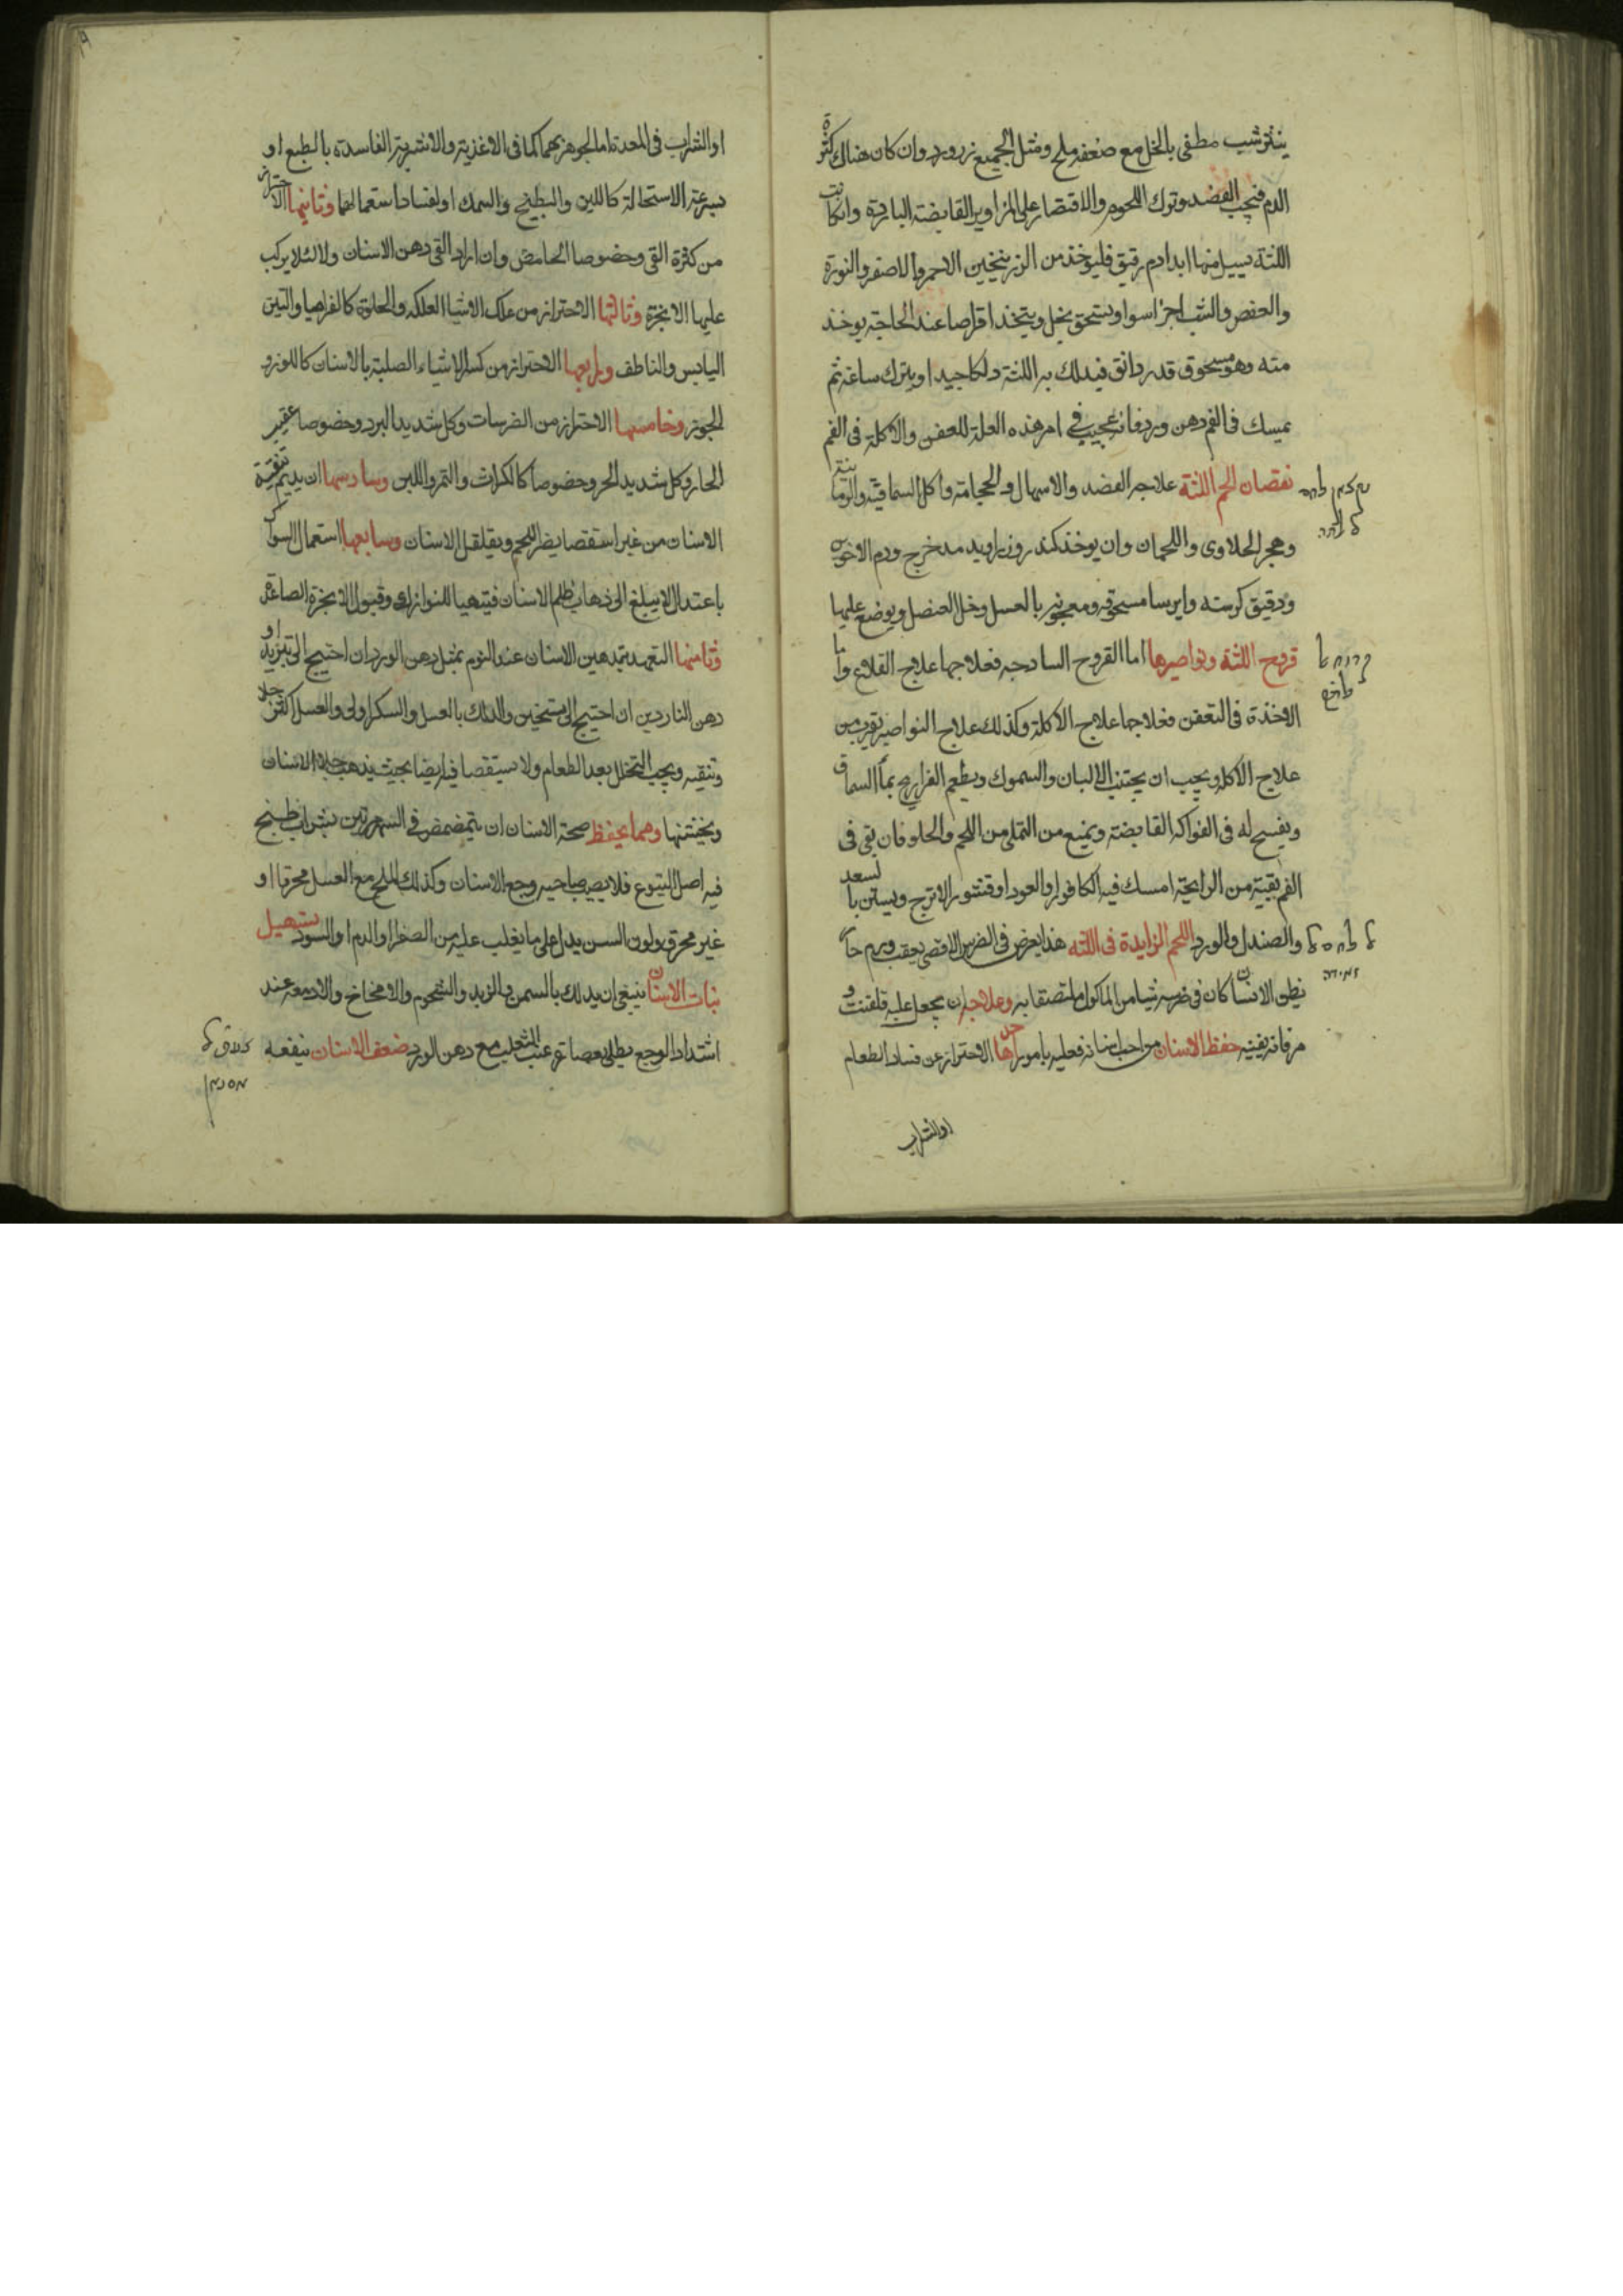 ينثر شب مطفى بالخل مع ضعفه ملح ومثل الجميع زرورد وان كان هناك كثرة
الدم فيجب الفصد وترك اللحوم والاقتصار على المزاوير القابضة الباردة وان كانت
اللثة يسيل منها ابدا دم رقيق فليوخذ من الزرنيخين الاحمر والاصفر والنورة
والعفص والشب اجزا سوا ويسحق بخل ويتخذ اقراصا عند الحاجة يوخذ
منه وهو مسحوق قدر دانق فيدلك به اللثة دلكا جيدا ويترك ساعة ثم
يمسك في الفم دهن ورد فانه عجيب في امر هذه العلة للعفن والاكلة في الفم
نقصان لحم اللثة علاجه الفصد والاسهال والحجامة واكل السماقية والرمانية
وهجر الحلاوى واللحمان وان يوخذ كندر وزراويد مدحرج ودم الاخوين
ودقيق كرسنه وايرسا مسحوقه ومعجونه بالعسل وخل العنصل ويوضع عليها
قروح اللثة ونواصيرها اما القروح الساذجه فعلاجها علاج القلاع واما
الاخذة في التعفن فعلاجها علاج الاكلة وكذلك علاج النواصير يقرب من
علاج الاكله ويجب ان يجتنب الالبان والسموك ويطعم الفراريج بماء السماق
ويفسح له في الفواكه القابضة ويمنع من التملي من اللحم والحلو فان بقي في
الفم بقية من الرايحة امسك فيه الكافور او العود او قشور الاترج ويستن بالسعد
والصندل والورد اللحم الزايدة في اللثه هذا يعرض في الضرس الاقصى يعقب ورم حا
يظن الانسان كان في ضرسه شيا من الماكول ملتصقا به وعلاجه ان يجعل عليه قلقنت و
مر فانه يفنيه حفظ الاسنان من احب فعليه بامور احدها الاحتراز عن فساد الطعام
او الشراب
او الشراب في المعدة اما لجوهرهما كما في الاغذية والاشربة الفاسدة بالطبع او
سرعة الاستحالة كاللبن والبطيخ والسمك او لفساد استعمالهما وثانيها الاحتراز
من كثرة القي وخصوصا الحامض وان اراد القي دهن الاسنان ولا لئلا يركب
عليها الابخرة وثالثها الاحتراز من علك الاشيا العلكه والحلوة كالقراصيا والتين
اليابس والناطف ورابعها الاحتراز من كسر الاشياء الصلبة بالاسنان كاللوز و
الجوز وخامسها الاحتراز من الضرسات وكل شديد البرد وخصوصا عقيب
الحار وكل شديد الحر وخصوصا كالكراث والتمر واللبن وسادسها ان يديم تنقية
الاسنان من غير استقصا يضر اللحم ويقلقل الاسنان وسابعها استعمال السواك
باعتدال لا يبلغ الى ذهاب ظلم الاسنان فيتهيا للنوازل وقبول الابخرة الصاعدة
وثامنها التعهد بتدهين الاسنان عند النوم بمثل دهن الورد ان احتيج الى تبريد او
دهن الناردين ان احتيج الى تسخين والدلك بالعسل والسكر اولى والعسل اكثر جلا
وتنقيه ويجب التخلل بعد الطعام ولا يستقصا فيه ايضا بحيث يذهب جلا الاسنان
ويخشنها ومما يحفظ صحة الاسنان ان يتمضمض في الشهر مرتين بشراب طبخ
فيه اصل اليتوع فلا يصيب صاحبه وجع الاسنان وكذلك الملح مع العسل محرقا او
غير محرق ولون السن يدل على ما يغلب عليه من الصفرا والدم او السود تسهيل
نبات الاسنان ينبغي ان يدلك بالسمن والزبد والشحوم والامخاخ والادمغه عند
اشتداد الوجع يطلى بعصارة عنب الثعلب مع دهن الورد ضعف الاسنان ينفعه